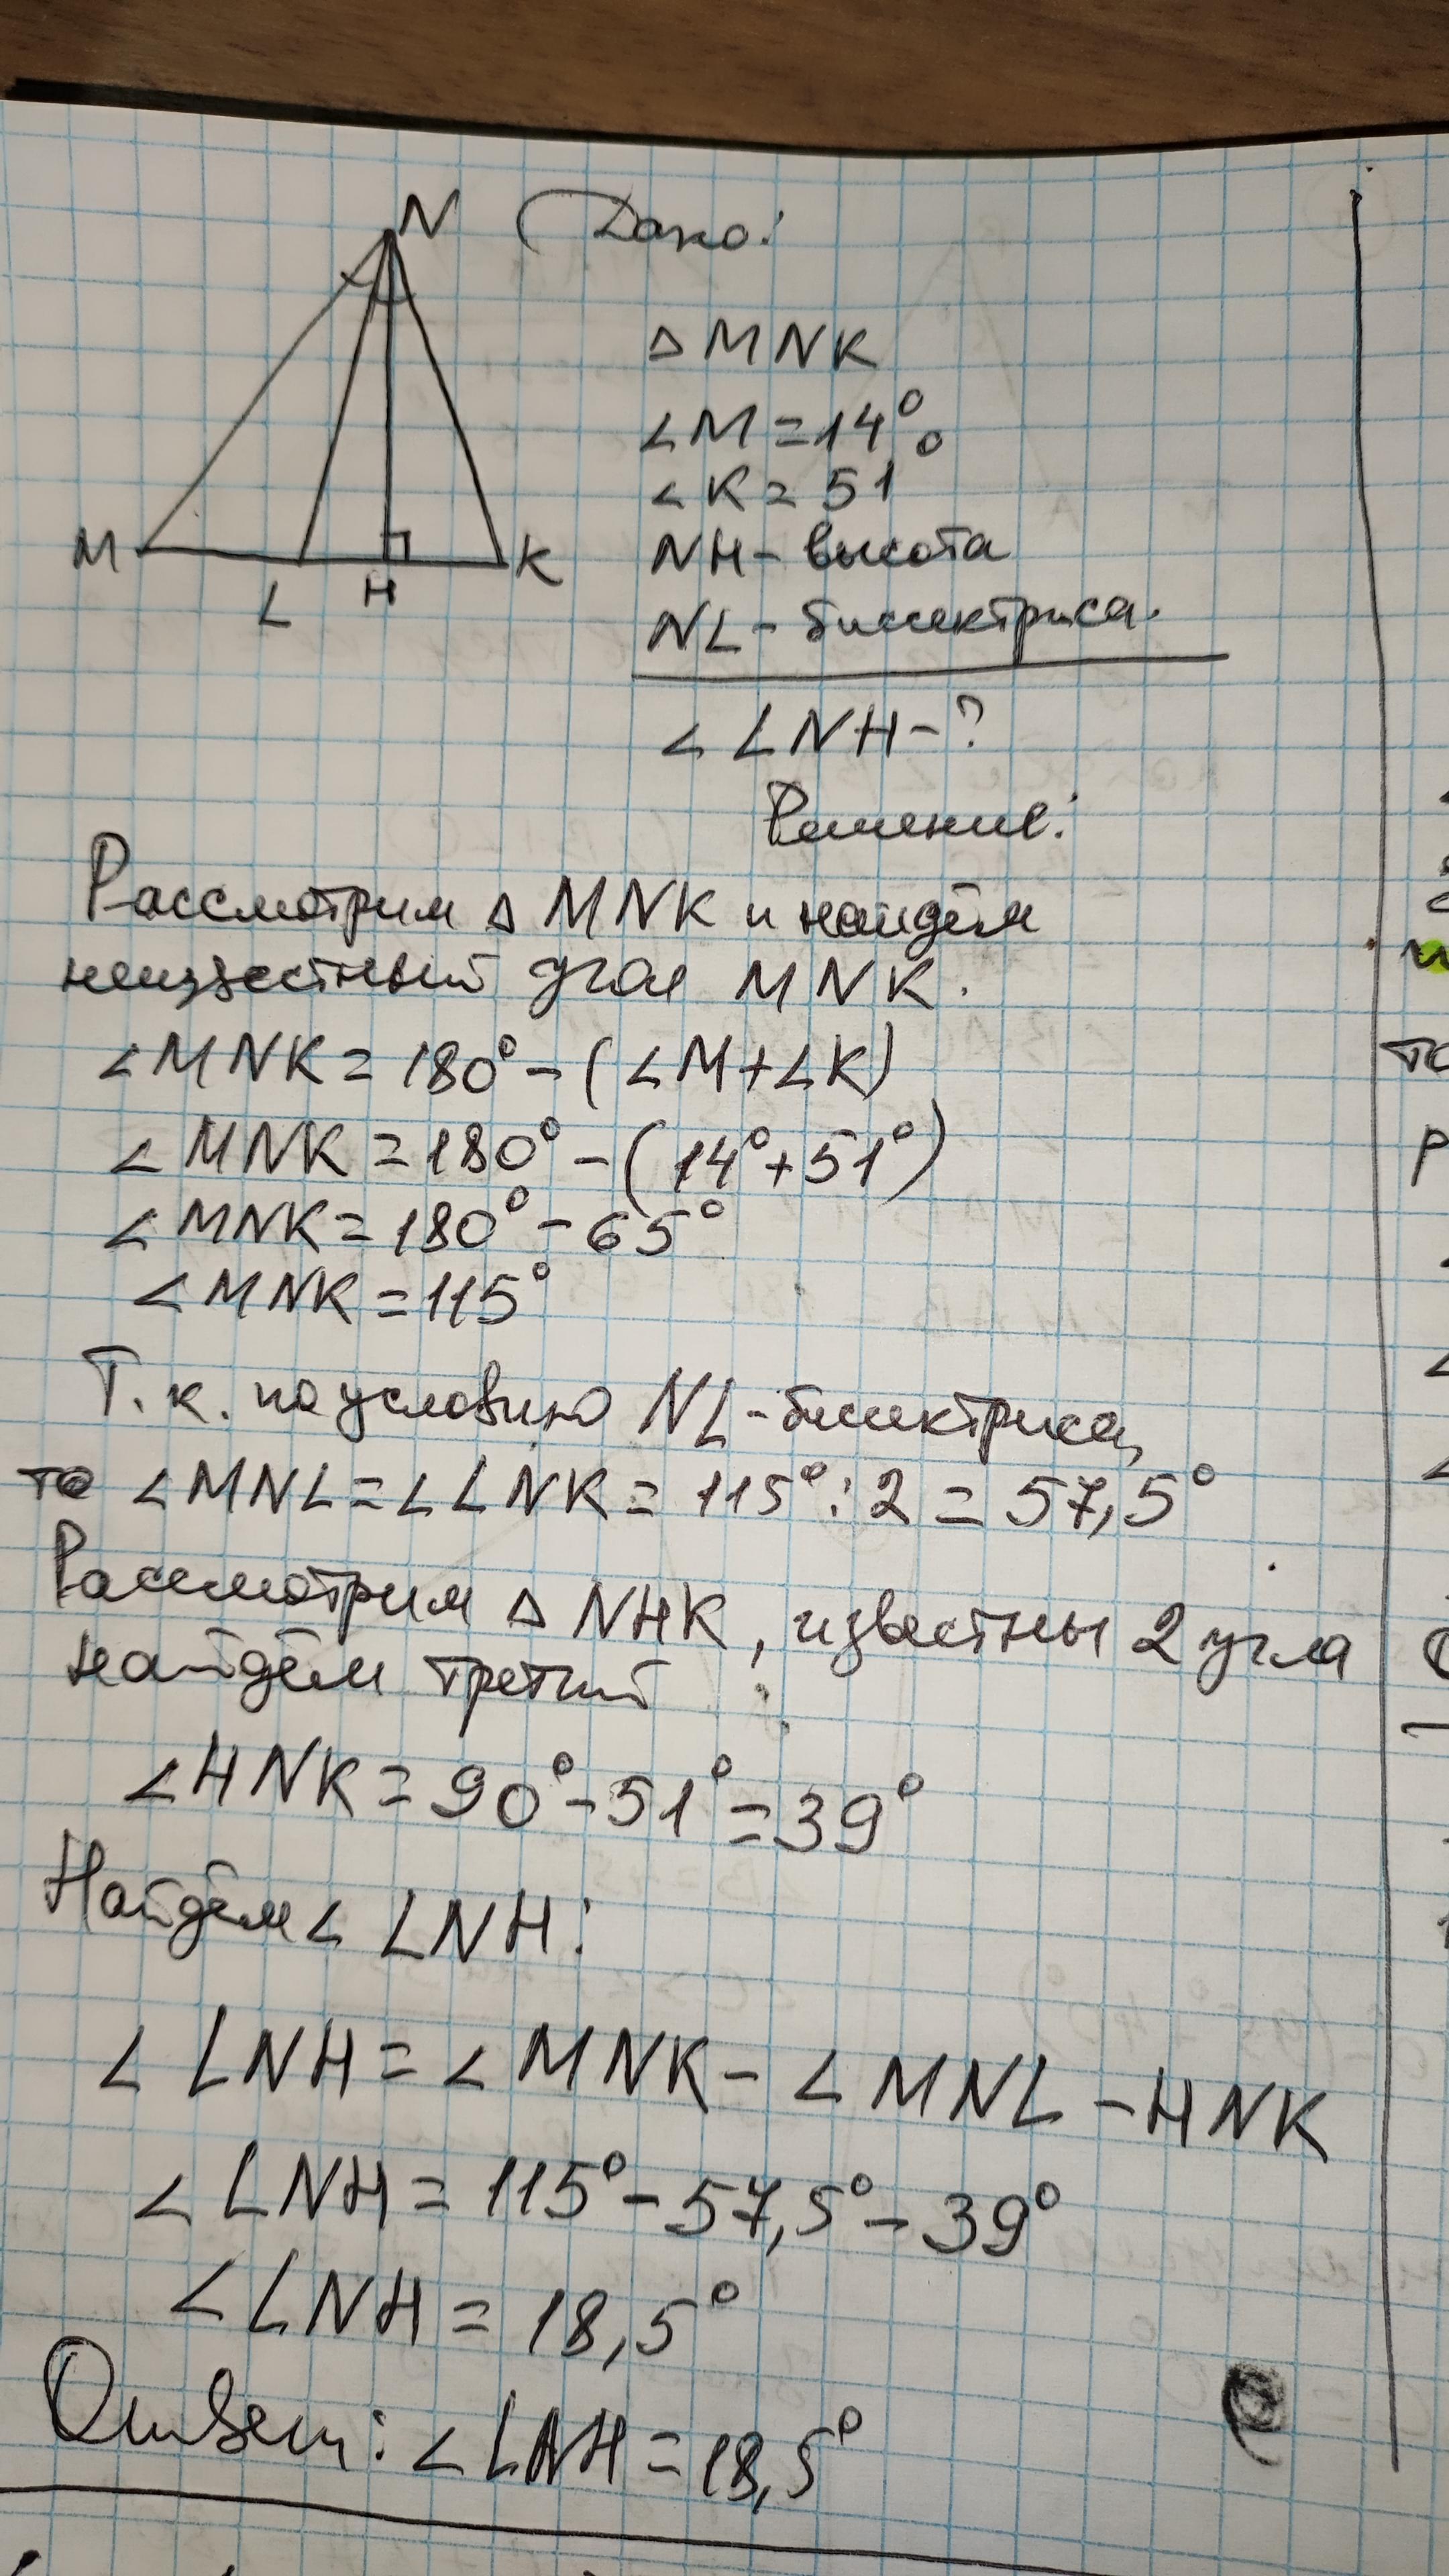 N Дано:
△MNK
∠M=14°
∠K=51°
M L H K NH-высота
NL-биссектриса.
∠LNH-?
Решение:
Рассмотрим △MNK и найдём
неизвестный угол MNK.
∠MNK=180°-(∠M+∠K)
∠MNK=180°-(14°+51°)
∠MNK=180°-65°
∠MNK=115°
Т.к. по условию NL-биссектриса,
то ∠MNL=∠LNK=115°:2=57,5°
Рассмотрим △NHK, известны 2 угла
найдём третий:
∠HNK=90°-51°=39°
Найдём ∠LNH:
∠LNH=∠MNK-∠MNL-HNK
∠LNH=115°-57,5°-39°
∠LNH=18,5°
Ответ: ∠LNH=18,5°